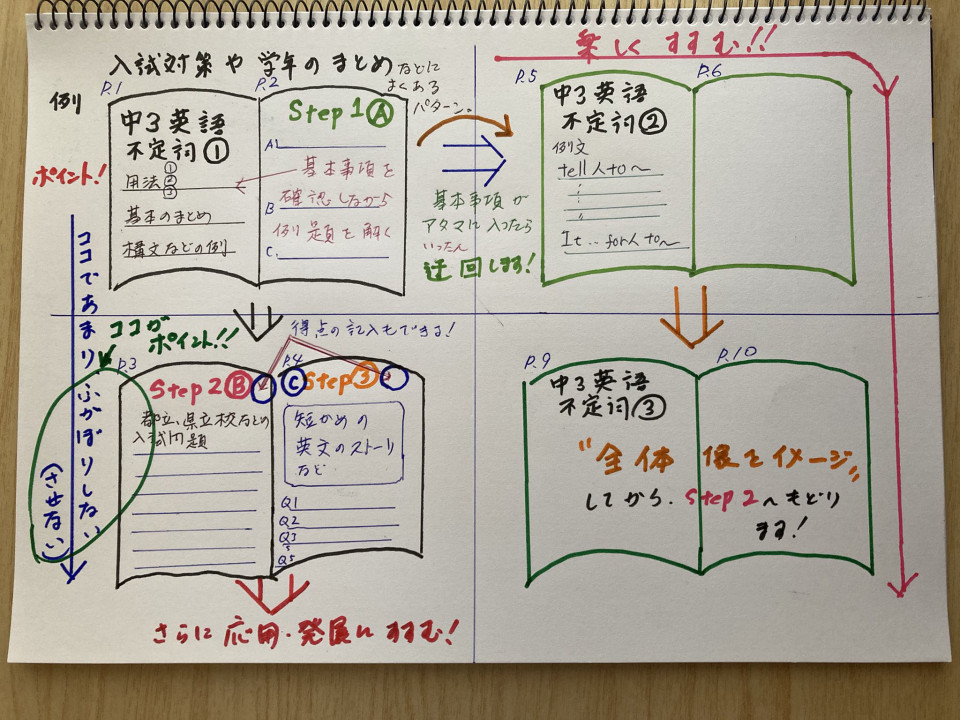 入試対策や学年のまとめなどに
よくある
パターン。
例)
P.1
P.2
中3英語
不定詞①
用法①
②
③
基本のまとめ
構文などの例
Step1Ⓐ
A1
基本事項を
確認しながら
B
例題を解く
C.
ポイント!
ココであまりふかぼりしない
(させない)
ココが
ポイント!!
基本事項が
アタマに入ったら
いったん
迂回します!
楽しくすすむ!!
P.5
P.6
中3英語
不定詞②
例文
tell人to〜
It‥for人to〜
得点の記入もできる!
P.3
P.4
Step2Ⓑ
都立、県立校などの
入試問題
Ⓒ Step③
短かめの
英文のストーリー
など
Q1
Q2
Q3
Q5
さらに応用・発展にすすむ!
P.9
P.10
中3英語
不定詞③
"全体像をイメージ"
してから、Step2へもどり
ます!